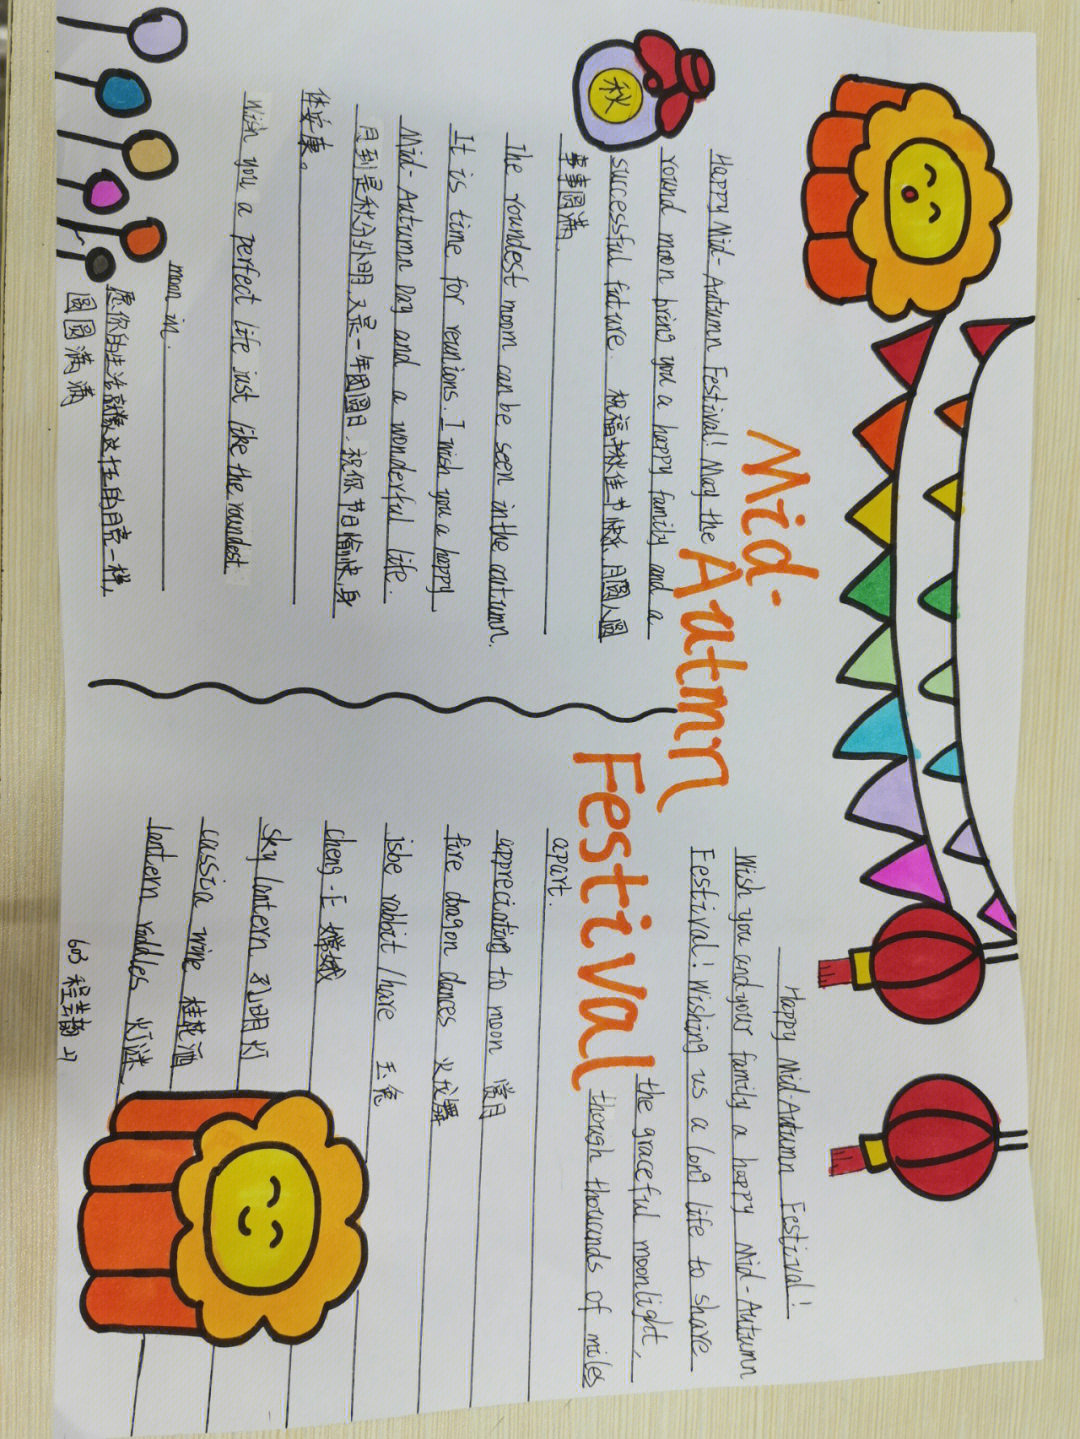 Mid-
Autmn
Festival
秋
Happy Mid-Autumn Festival! May the
round moon bring you a happy family and a
successful future. 祝福中秋佳节快乐,月圆人圆
事事圆满.
The roundest moom can be seen in the autumn.
It is time for reunions. I wish you a happy
Mid-Autumn Day and a wonderful life.
月到是秋分外明,又是一年团圆日,祝你节日愉快,身
体安康。
Wish you a perfect life just like the roundest
moon in.
愿你的生活就像这十五的月亮一样,
圆圆满满
Happy Mid-Autumn Festival!
Wish you and your family a happy Mid-Autumn
Festival! Wishing us a long life to share
the graceful moonlight,
though thousands of miles
apart.
appreciating to moon 赏月
fire dragon dances 火龙舞
jsbe rabbit/hare 玉兔
Cheng-E 嫦娥
Sky lantern 孔明灯
cassia wine 桂花酒
lantern raddles 灯谜
603 程芸